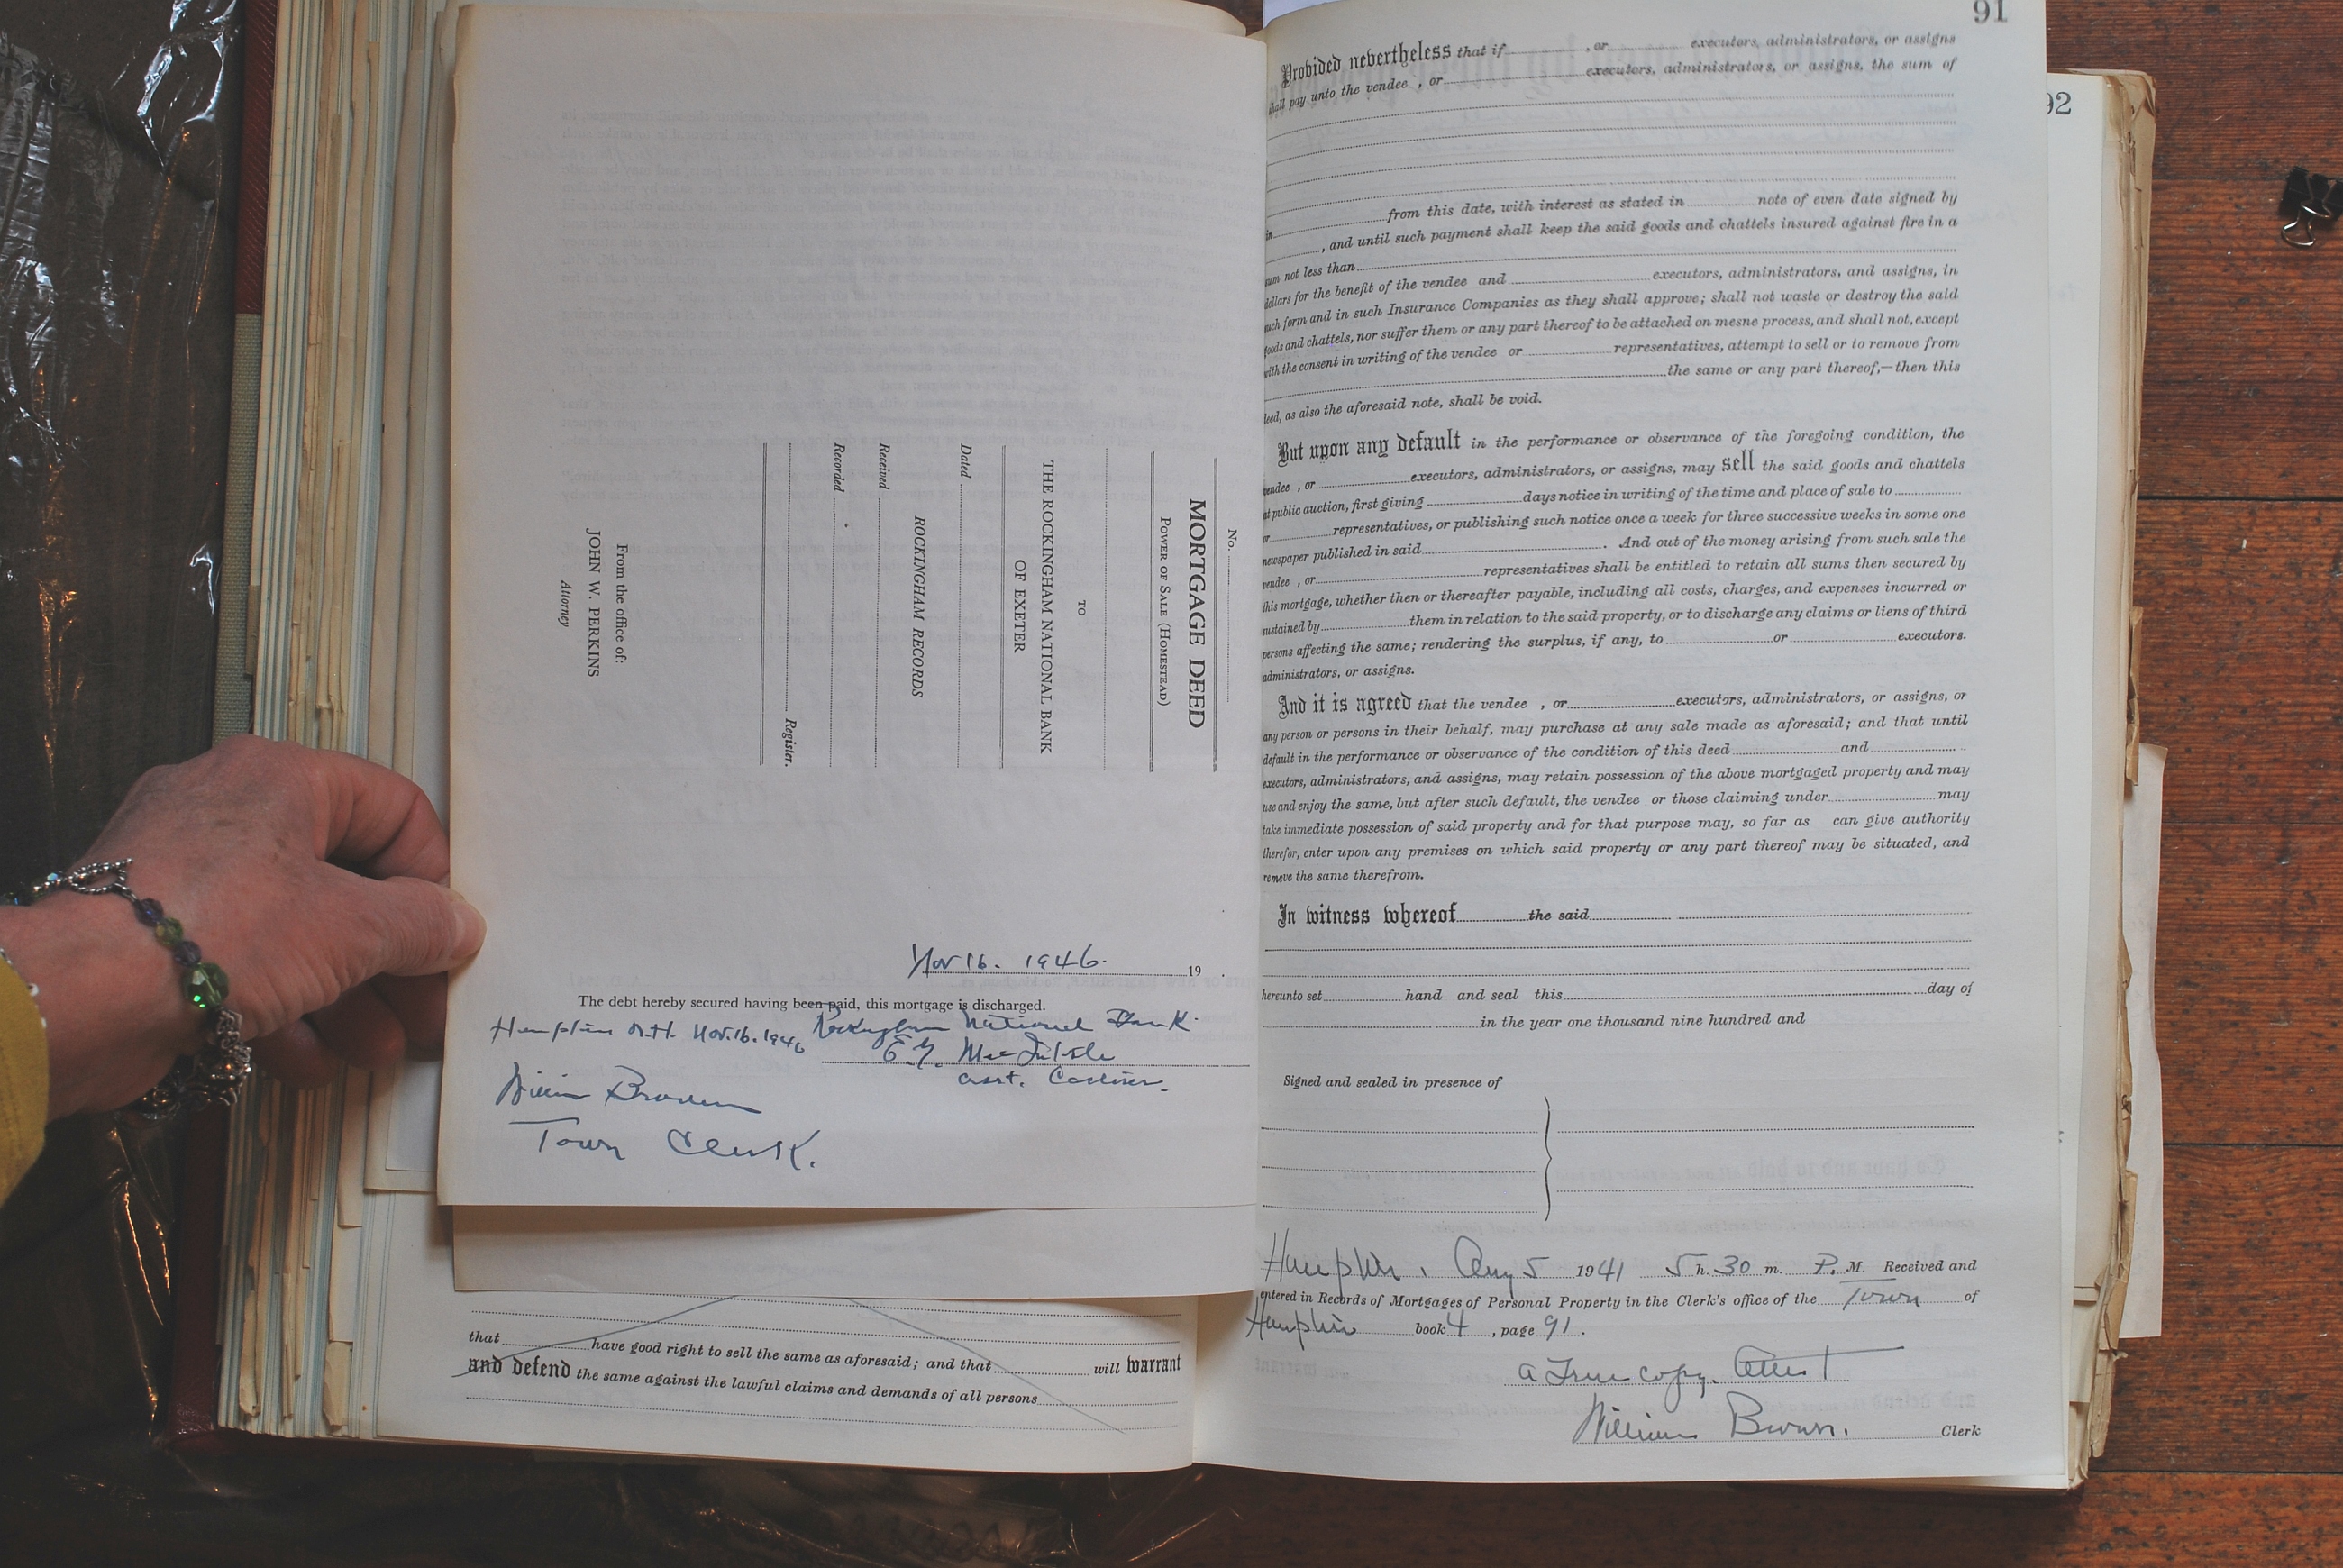 No.
MORTGAGE DEED
POWER OF SALE (HOMESTEAD)
TO
THE ROCKINGHAM NATIONAL BANK
OF EXETER
Dated
ROCKINGHAM RECORDS
Received
Recorded
Register.
From the office of:
JOHN W. PERKINS
Attorney
Nov 16. 1946. 19 .
The debt hereby secured having been paid, this mortgage is discharged.
Hampton N.H. Nov. 16. 1946 Rockingham National Bank
asst. Cashier
William Brown
Town Clerk.
that have good right to sell the same as aforesaid; and that will warrant
and defend the same against the lawful claims and demands of all persons
91
92
Provided nevertheless that if , or executors, administrators, or assigns
shall pay unto the vendee , or executors, administrators, or assigns, the sum of
in from this date, with interest as stated in note of even date signed by
, and until such payment shall keep the said goods and chattels insured against fire in a
sum not less than
dollars for the benefit of the vendee and executors, administrators, and assigns, in
such form and in such Insurance Companies as they shall approve; shall not waste or destroy the said
goods and chattels, nor suffer them or any part thereof to be attached on mesne process, and shall not, except
with the consent in writing of the vendee or representatives, attempt to sell or to remove from
the same or any part thereof,—then this
deed, as also the aforesaid note, shall be void.
But upon any default in the performance or observance of the foregoing condition, the
vendee , or executors, administrators, or assigns, may sell the said goods and chattels
at public auction, first giving days notice in writing of the time and place of sale to
or representatives, or publishing such notice once a week for three successive weeks in some one
newspaper published in said . And out of the money arising from such sale the
vendee , or representatives shall be entitled to retain all sums then secured by
this mortgage, whether then or thereafter payable, including all costs, charges, and expenses incurred or
sustained by them in relation to the said property, or to discharge any claims or liens of third
persons affecting the same; rendering the surplus, if any, to or executors.
administrators, or assigns.
And it is agreed that the vendee , or executors, administrators, or assigns, or
any person or persons in their behalf, may purchase at any sale made as aforesaid; and that until
default in the performance or observance of the condition of this deed and
executors, administrators, and assigns, may retain possession of the above mortgaged property and may
use and enjoy the same, but after such default, the vendee or those claiming under may
take immediate possession of said property and for that purpose may, so far as can give authority
therefor, enter upon any premises on which said property or any part thereof may be situated, and
remove the same therefrom.
In witness whereof the said
hereunto set hand and seal this day of
in the year one thousand nine hundred and
Signed and sealed in presence of
Hampton. Aug 5 1941 5 h. 30 m. P. M. Received and
entered in Records of Mortgages of Personal Property in the Clerk's office of the Town of
Hampton book 4 , page 91 .
a True copy. Attest
William Brown. Clerk